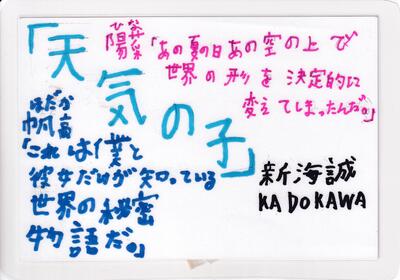 「天気の子」
ひな
陽菜
「あの夏の日あの空の上で
世界の形を決定的に
変えてしまったんだ。」
ほだか
帆高
「これは僕と
彼女だけが知っている
世界の秘密
物語だ。」
新海誠
KADOKAWA